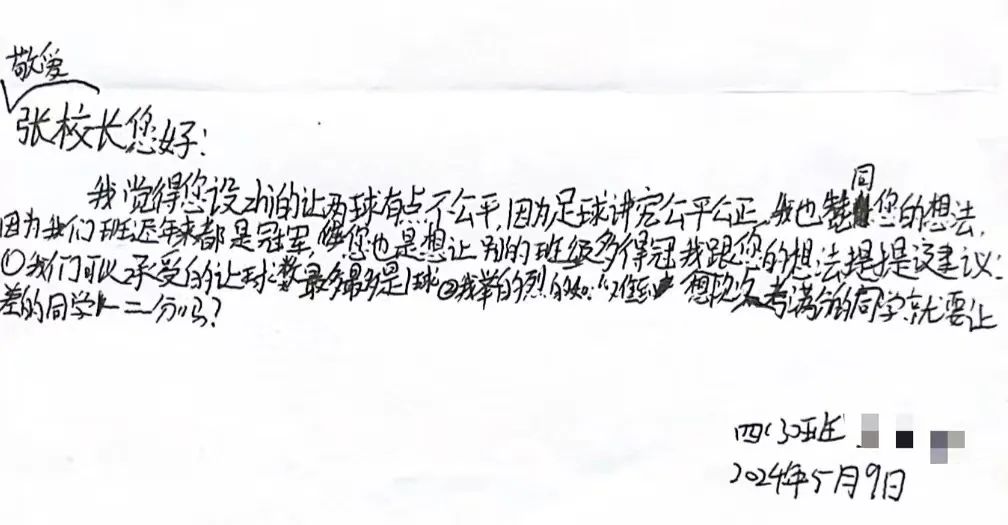 敬爱
张校长您好：
我觉得您设zhi的让两球有点不公平，因为足球讲究公平公正，我也赞同您的想法，
因为我们班近年来都是冠军，您也是想让别的班级多得冠我跟您的想法提提建议：
①我们可以承受的让球数最多最多是1球②我举的列的如：“难到 想次次考满分的同学就要让
差的同学 二分吗？
四(3)班
2024年5月9日